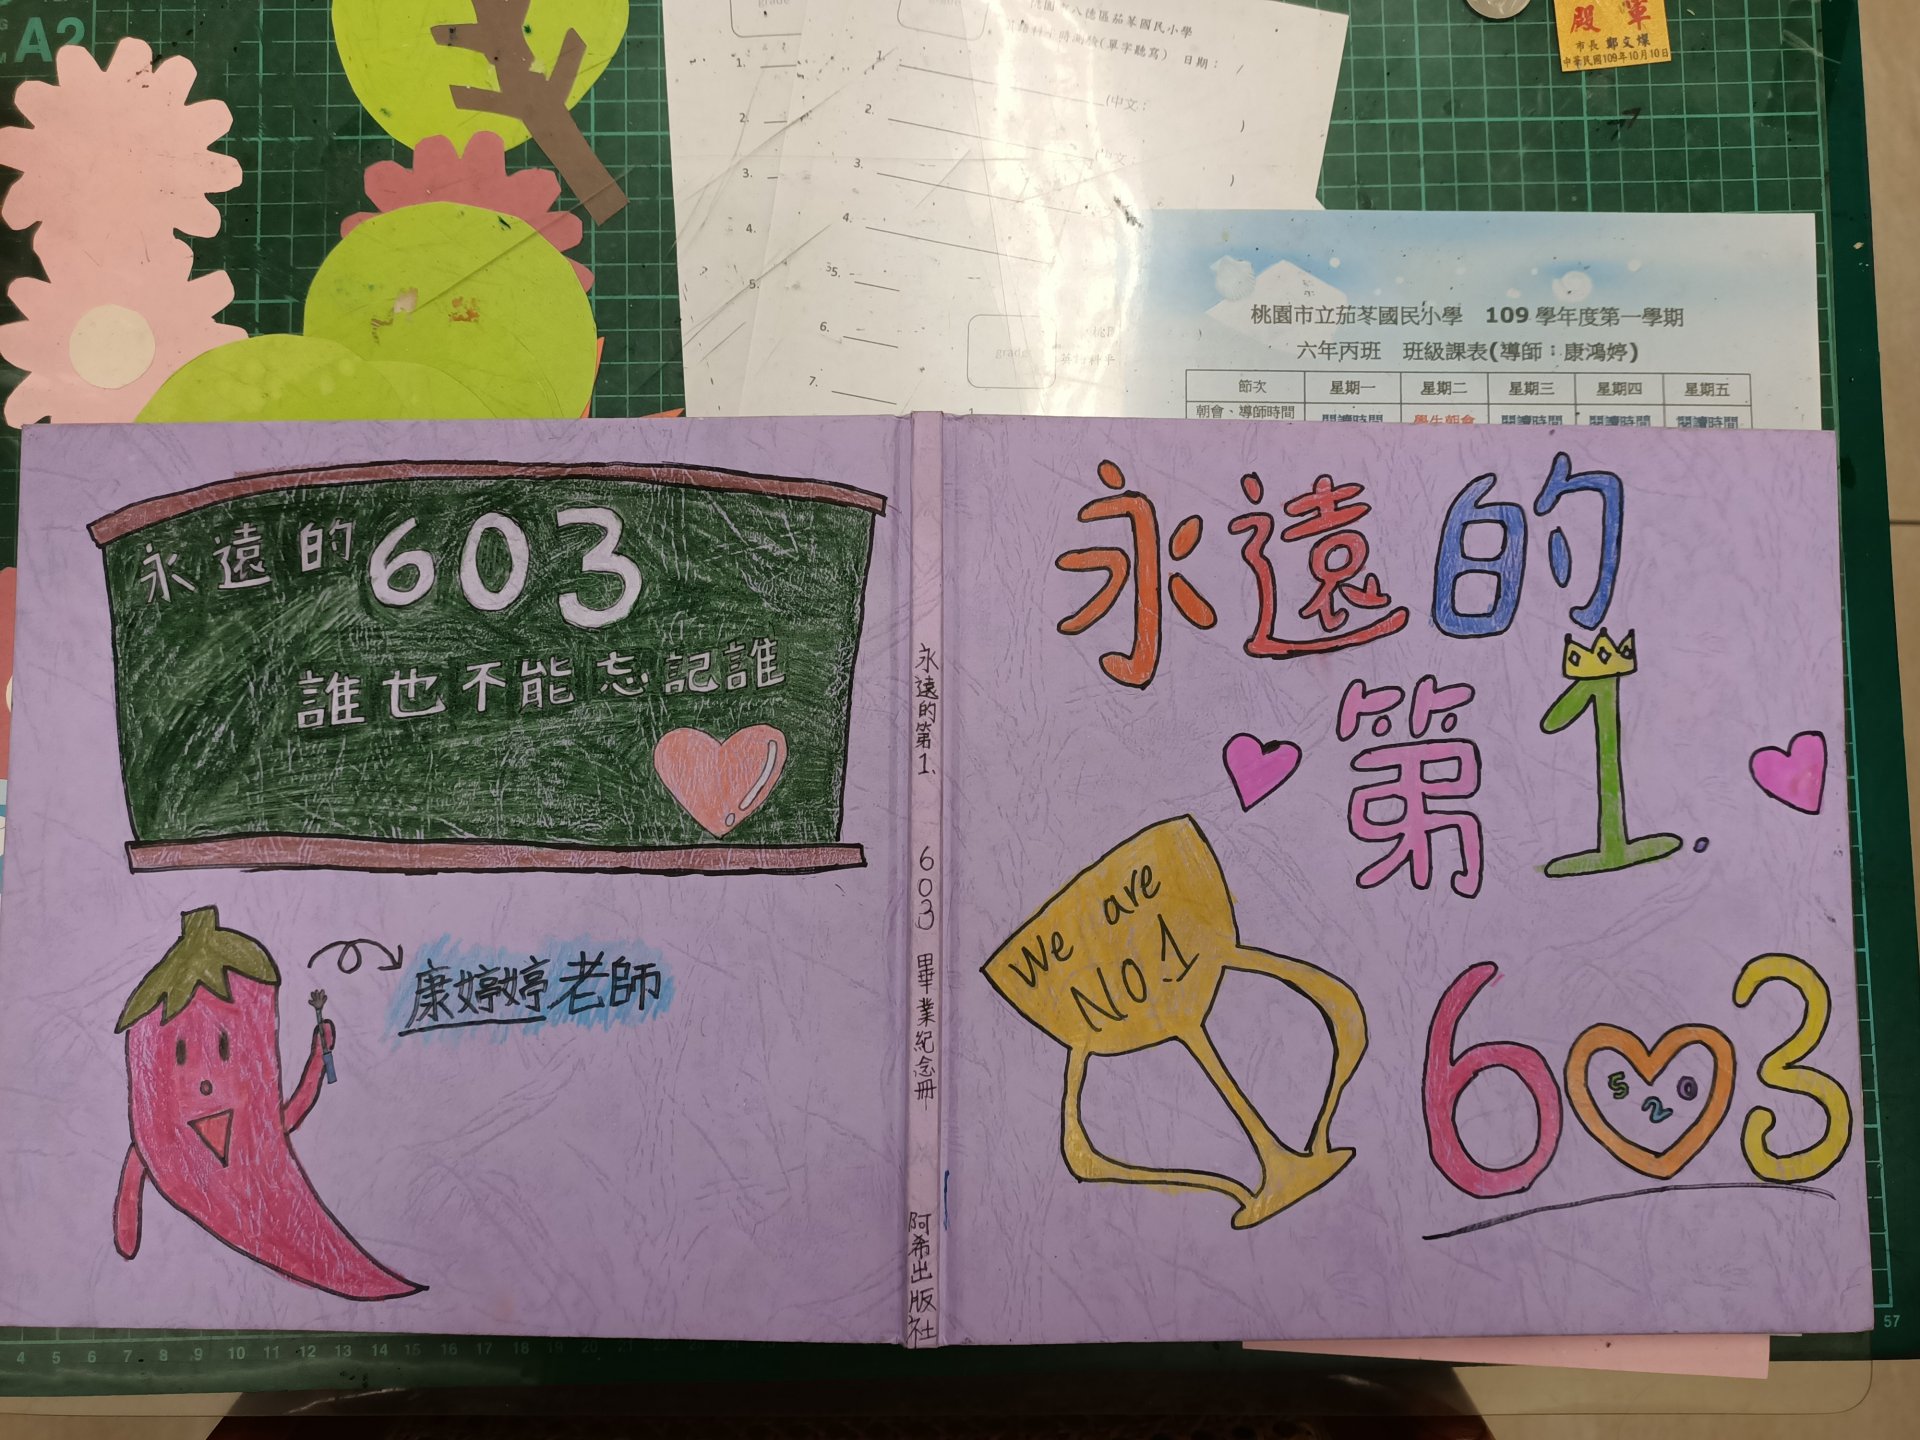 A2
grade
grade
八德區茄苳國民小學
測驗(單字聽寫) 日期： /
1.
1.
(中文：
2.
)
2.
中文：
3.
)
3.
4.
4.
5.
5.
6.
grade
英
科平
7.
1.
殿
軍
市長 鄭文燦
中華民國109年10月10日
桃園市立茄苳國民小學 109 學年度第一學期
六年丙班 班級課表(導師：康鴻婷)
節次 星期一 星期二 星期三 星期四 星期五
朝會、導師時間 閱讀時間 學生朝會 閱讀時間 閱讀時間 閱讀時間
永遠的603
誰也不能忘記誰
康婷婷老師
永遠的第1. 603 畢業紀念冊 阿希出版社
永遠的
第1.
We are
NO.1
603
520
4 5 6 7 8 9 10 11 12 13 14 15 16 17 18 19 20 21 22
57